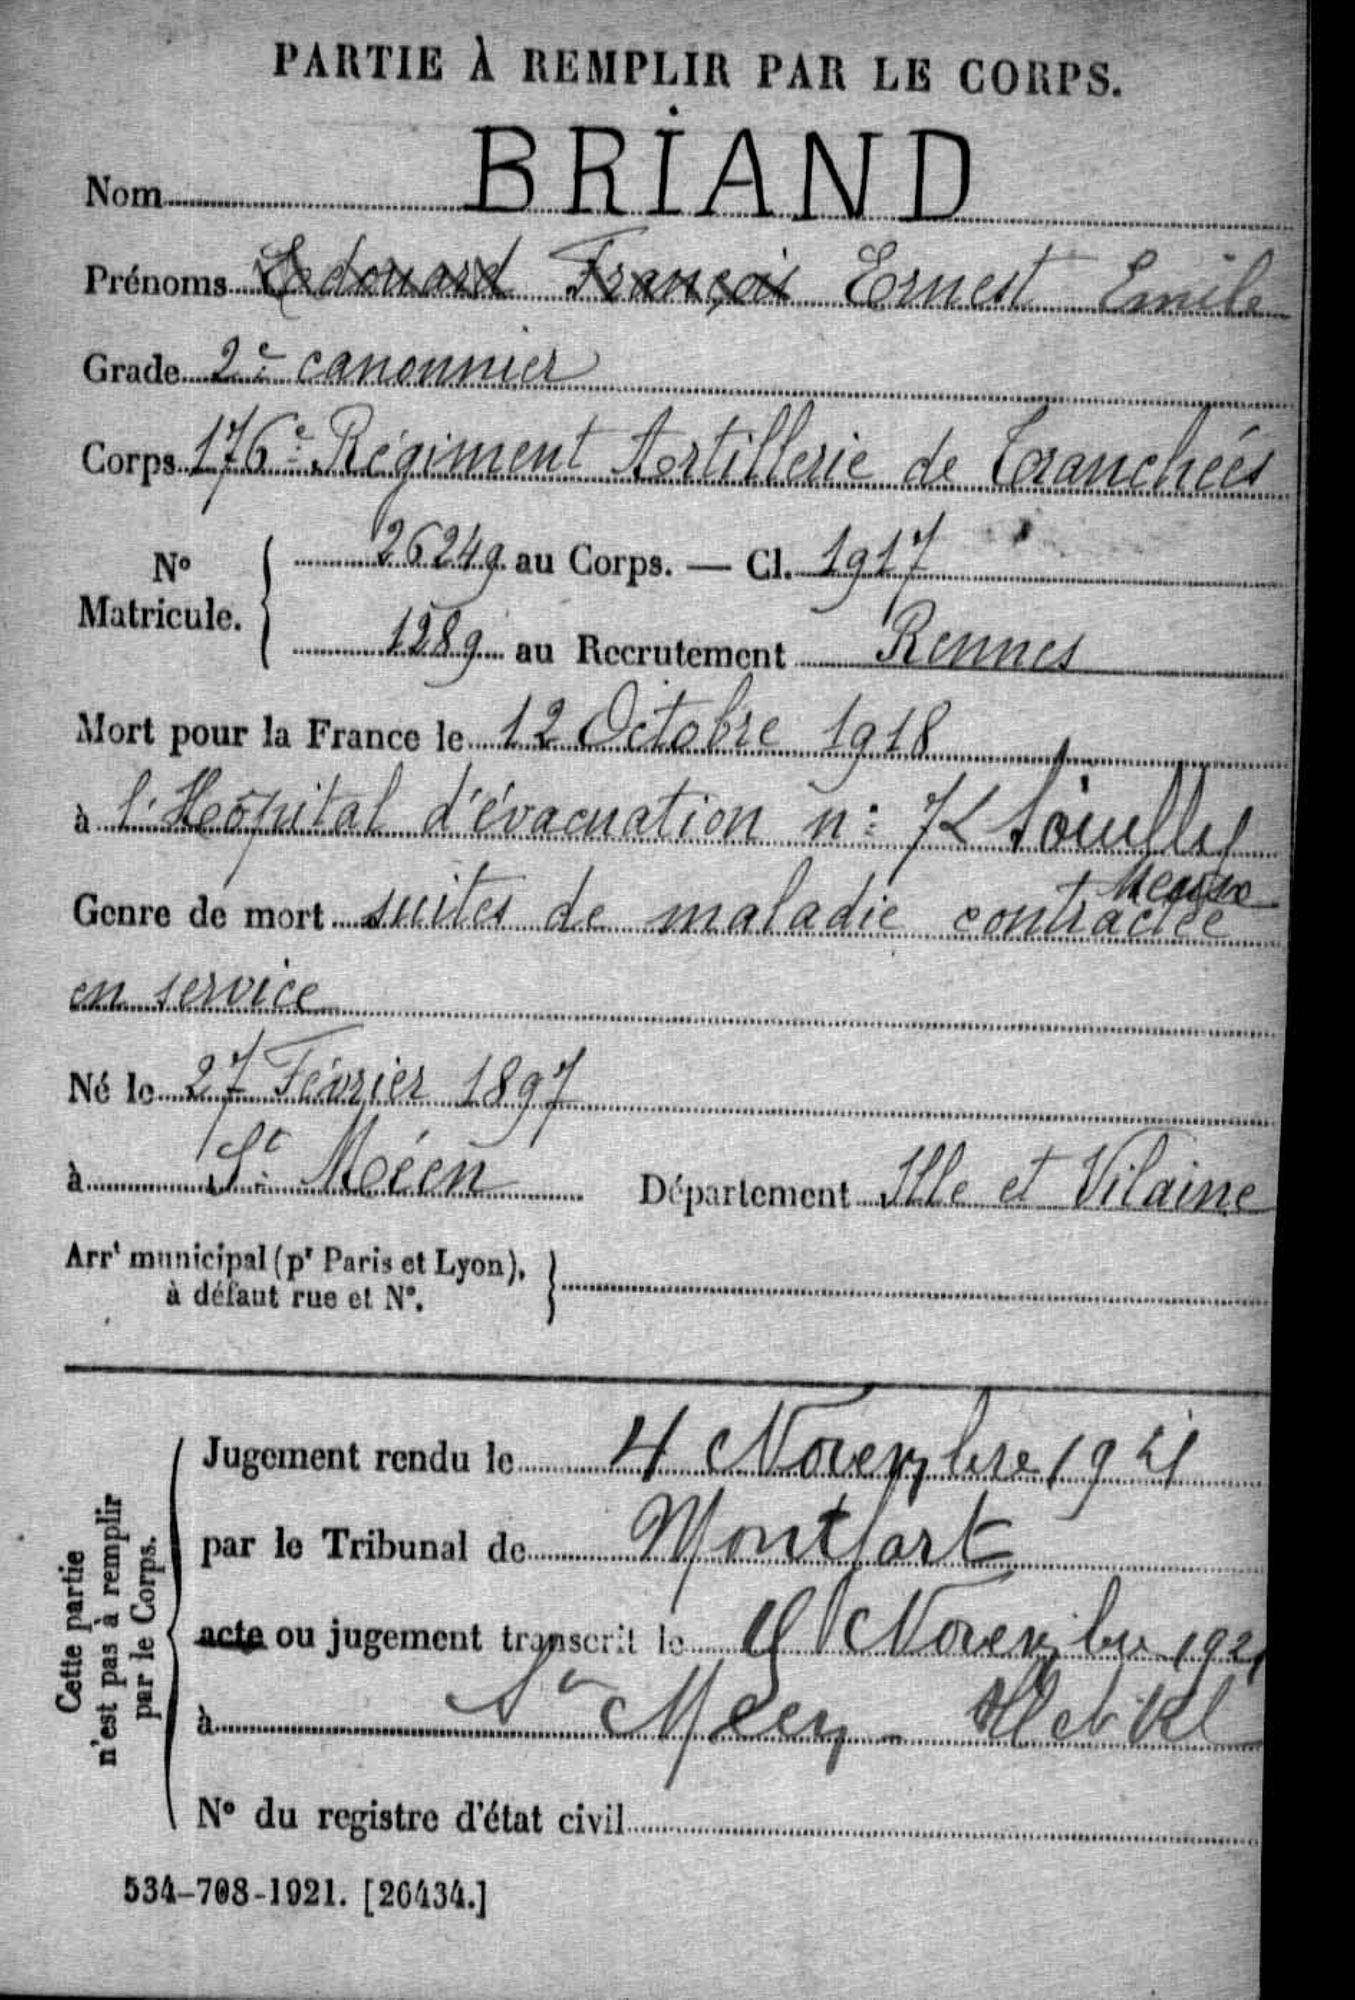 PARTIE À REMPLIR PAR LE CORPS.
Nom BRIAND
Prénoms Edouard François Ernest Emile
Grade 2e canonnier
Corps 176e Régiment Artillerie de Tranchées
No Matricule. { 26249 au Corps. — Cl. 1917
1289 au Recrutement Rennes
Mort pour la France le 12 Octobre 1918
à l'Hôpital d'évacuation n: 7 Souilly
Meuse
Genre de mort suites de maladie contractée
en service
Né le 27 Février 1897
à St Méen Département Ille et Vilaine
Arrt municipal (pr Paris et Lyon),
à défaut rue et No.
Cette partie
n'est pas à remplir
par le Corps.
Jugement rendu le 4 Novembre 1921
par le Tribunal de Montfort
acte ou jugement transcrit le Novembre 1921
à St Méen - Ille et Vil
No du registre d'état civil
534-708-1921. [26434.]